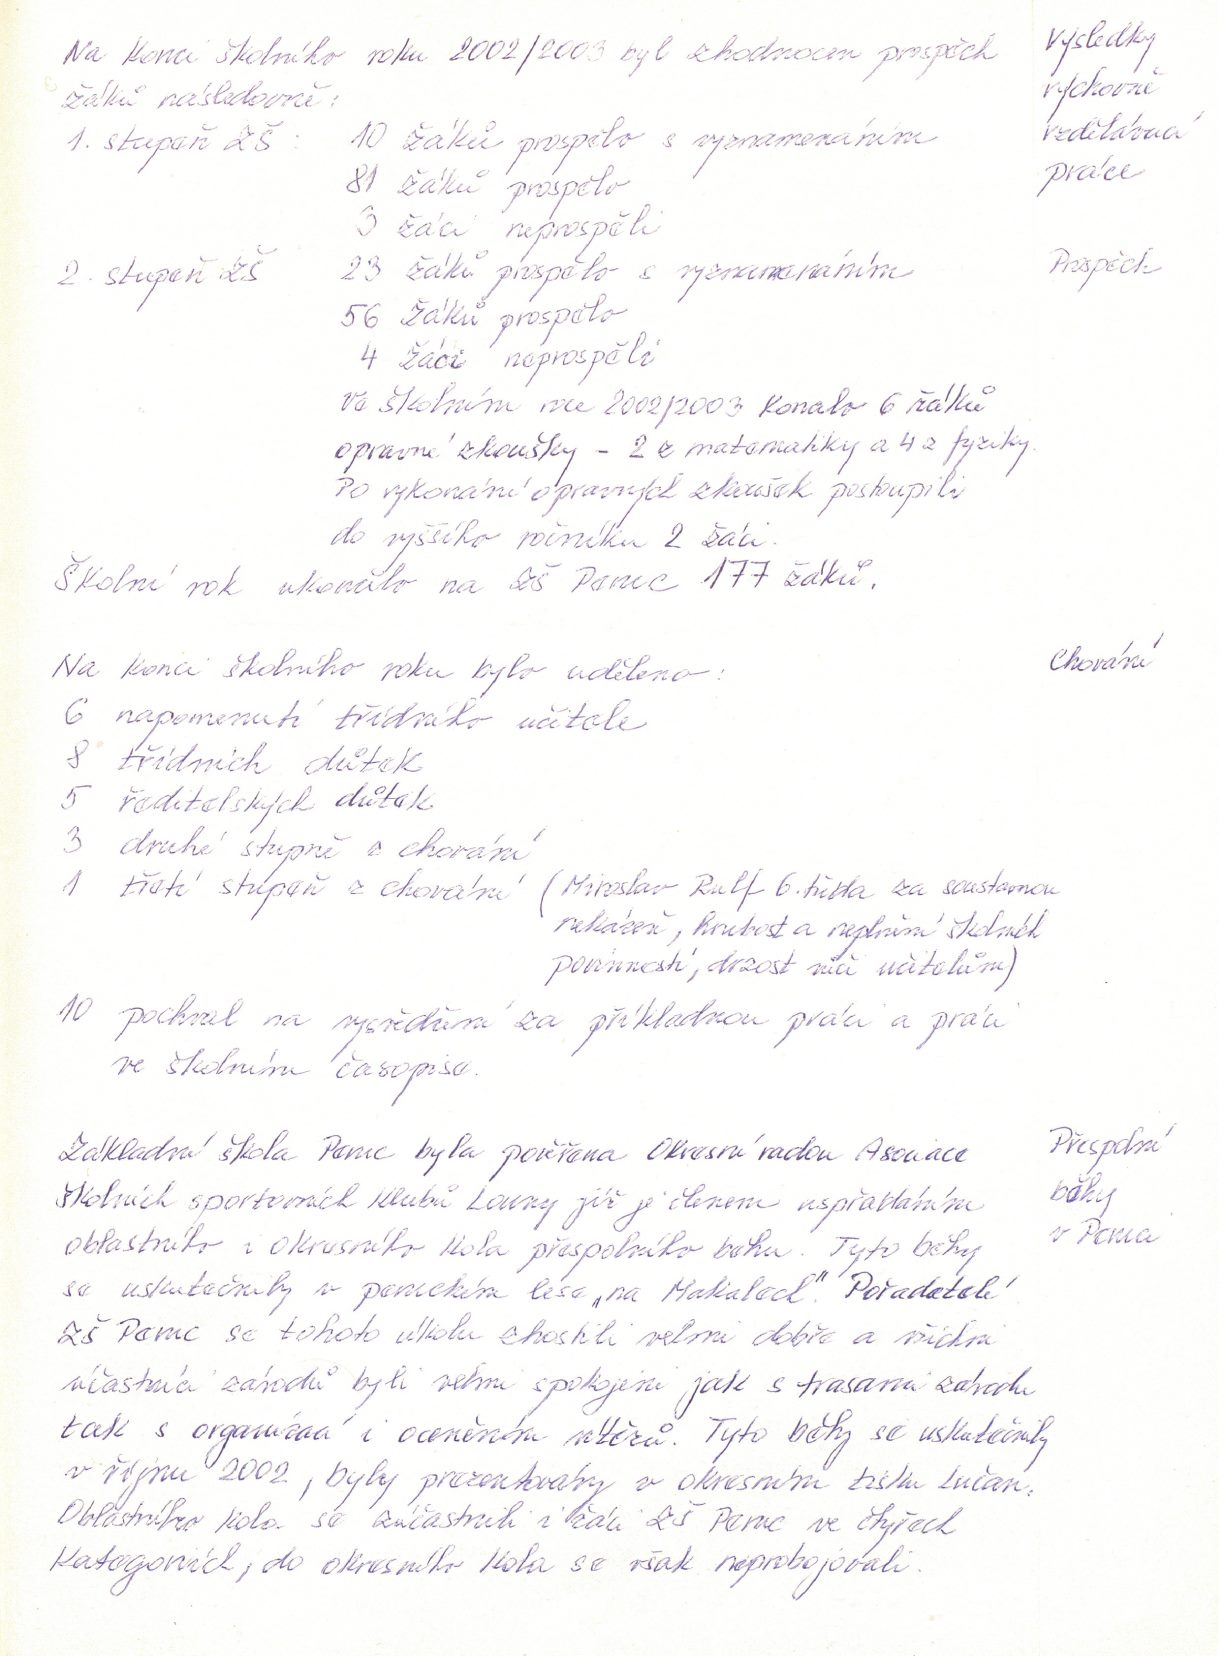 Na konci školního roku 2002/2003 byl zhodnocen prospěch
žáků následovně:
1. stupeň ZŠ: 10 žáků prospělo s vyznamenáním
81 žáků prospělo
3 žáci neprospěli
2. stupeň ZŠ 23 žáků prospělo s vyznamenáním
56 žáků prospělo
4 žáci neprospěli
Ve školním roce 2002/2003 konalo 6 žáků
opravné zkoušky - 2 z matematiky a 4 z fyziky.
Po vykonání opravných zkoušek postoupili
do vyššího ročníku 2 žáci.
Školní rok ukončilo na ZŠ Peruc 177 žáků.
Výsledky
výchovně
vzdělávací
práce
Prospěch
Na konci školního roku bylo uděleno:
6 napomenutí třídního učitele
8 třídních důtek
5 ředitelských důtek
3 druhé stupně z chování
1 třetí stupeň z chování (Miroslav Rulf 6. třída za soustavnou
nekázeň, hrubost a neplnění školních
povinností, drzost vůči učitelům)
10 pochval na vysvědčení za příkladnou práci a práci
ve školním časopise.
Chování
Základní škola Peruc byla pověřena Okresní radou Asociace
školních sportovních klubů Louny jíž je členem uspořádáním
oblastního i okresního kola přespolního běhu. Tyto běhy
se uskutečnily v peruckém lese „na Makalech". Pořadatelé
ZŠ Peruc se tohoto úkolu zhostili velmi dobře a všichni
účastníci závodů byli velmi spokojeni jak s trasami závodu
tak s organizací i oceněním vítězů. Tyto běhy se uskutečnily
v říjnu 2002, byly prezentovány v okresním tisku Lučan.
Oblastního kola se zúčastnili i žáci ZŠ Peruc ve čtyřech
kategoriích, do okresního kola se však neprobojovali.
Přespolní
běhy
v Peruci